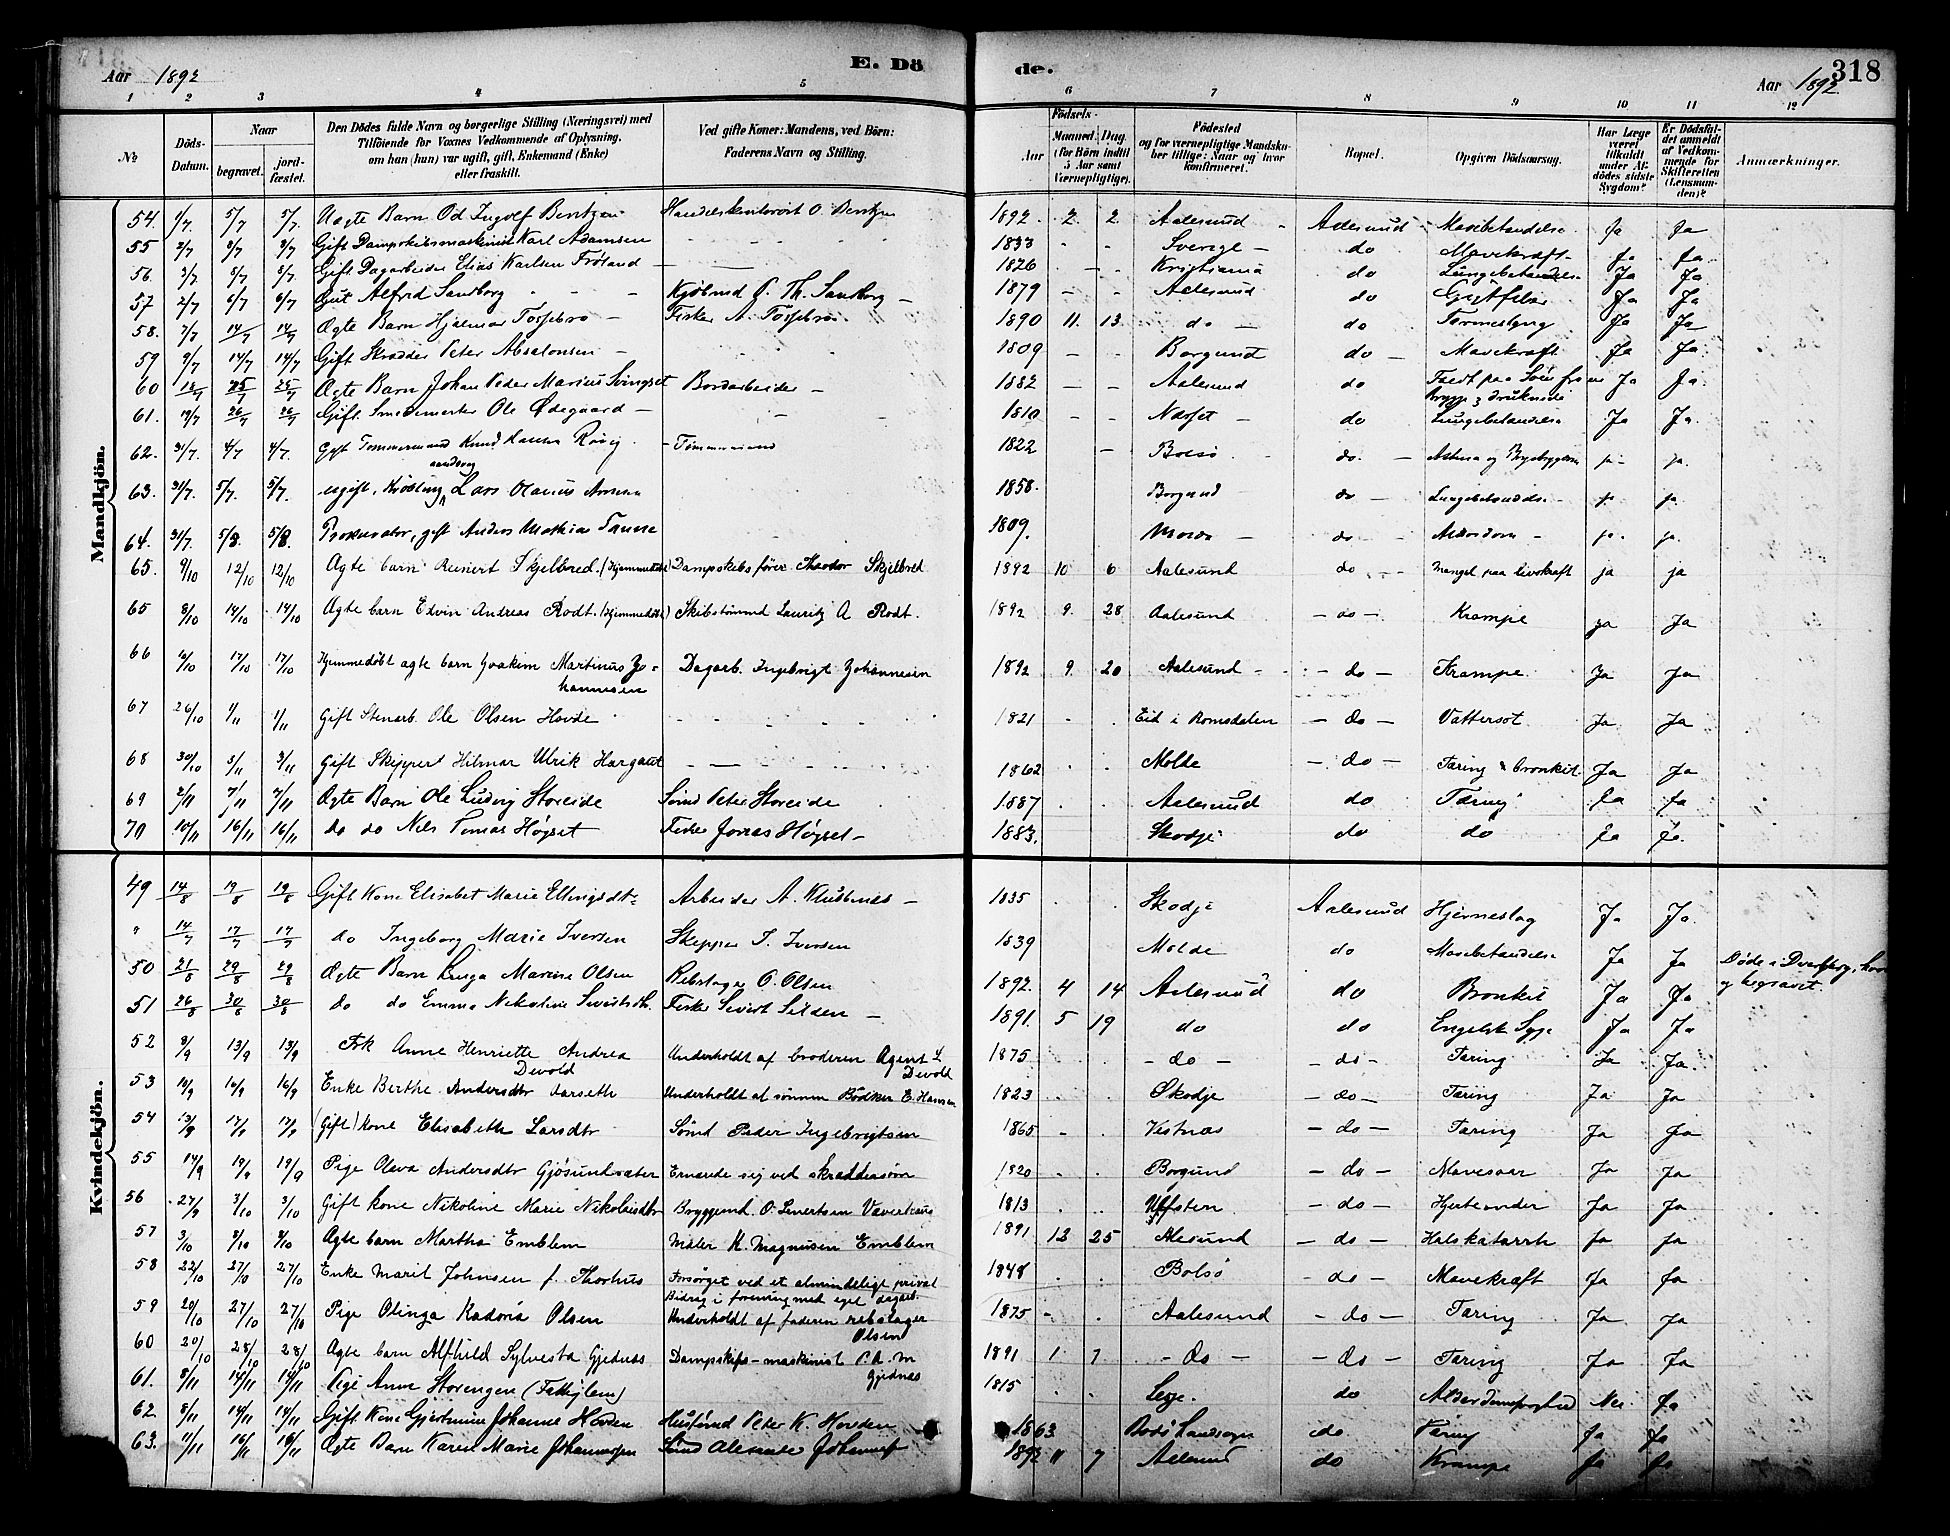 Aar 1892
E. Dö
de.
Aar 1892
318
1 2 3 4 5 6 7 8 9 10 11 12
No
Döds-Datum.
Naar
begravet.
jord-fæstet.
Den Dödes fulde Navn og borgerlige Stilling (Næringsvei) med
Tilföiende for Voxnes Vedkommende af Oplysning,
om han (hun) var ugift, gift, Enkemand (Enke)
eller fraskilt.
Ved gifte Koner: Mandens, ved Börn:
Faderens Navn og Stilling.
Födsels-
Aar
Maaned. Dag.
(for Börn indtil
5 Aar samt
Værnepligtige).
Födested
og for værnepligtige Mandska-
ber tillige: Naar og hvor
konfirmeret.
Bopæl.
Opgiven Dödsaarsag.
Har Læge
været
tilkaldt
under Af-
dödes sidste
Sygdom?
Er Dödsfal-
det anmeldt
af Vedkom-
mende for
Skifteretten
(Lensman-
den)?
Anmærkninger.
Mandkjön.
54. 1/7. 5/7 5/7. Uægte Barn Od Ingolf Bentzen Handelskontorist O Bentzen 1892. 2. 2. Aalesund Aalesund Mavebetændelse Ja Ja
55 2/7 8/7 8/7 Gift Dampskibsmaskinist Karl Adamsen 1833 Sverige do Mavekræft Ja Ja
56. 3/7. 8/7 8/7. Gift Dagarbeider Elias Karlsen Fröland 1826 Kristiania do Lungebetændelse Ja Ja
57 2/7 6/7 6/7 Gut Alfred Sandborg Kjöbmd J. Th. Sandborg 1879 Aalesund do Gigtfeber Ja Ja
58. 7/7 14/7 14/7 Ægte Barn Hjalmar Fossebro Fisker A. Fossebro 1890 11. 13. do do Ja Ja
59 9/7 14/7 14/7 Gift Skrædder Peter Absalonsen 1809 Borgund do Mavekræft Ja Ja
60 18/7 25/7 25/7 Ægte Barn Johan Peder Marius Svingset Bordarbeider 1882 Aalesund do Faldt paa Söen fra en Brygge & druknede Ja Ja.
61. 19/7 26/7 26/7 Gift Smedmester Ole Ødegaard 1810 Næsset do Lungebetændelse Ja Ja.
62. 31/7. 4/7 4/7. Gift Tømmermand Knud Rövig Tømmermand 1822 Bolsö do. Astma og ja ja.
63. 31/7. 5/7. 5/7. ugift, Kröbling Lars Olaus 1858. Borgund do Lungebetændelse ja ja.
64. 31/7. 5/8. 5/8. Prokurator, gift Anders Mathias 1809. do Alderdom ja. ja.
65. 9/10 12/10 12/10 Ægte barn Reinert Skjelbred. (Hjemmedöbt) Dampskibsförer Theodor Skjelbred 1892 10 6 Aalesund do Mangel paa livskraft ja ja
65 8/10 14/10 14/10 Ægte barn Edvin Andreas Rodt. (Hjemmedöbt) Skibstömmd Lauritz A Rodt. 1892 9. 28 Aalesund do Krampe ja Ja
66 12/10 17/10 17/10 Hjemmedöbt ægte barn Joakim Martinus Johannesen Dagarb. Ingebrigt Johannesen 1892 9. 20 Aalesund do Krampe Ja Ja
67 26/10 1/11 1/11 Gift Stenarb. Ole Olsen Hovde 1821 Eid i Romsdalen do Vattersot Ja Ja
68 30/10 3/11 3/11 Gift Skipper Hilmar Ulrik Hargaut 1862 Molde do Tæring & bronkit Ja Ja
69 2/11 7/11 7/11 Ægte Barn Ole Ludvig Storeide Sömd Peter Storeide 1887 Aalesund do Tæring Ja Ja
70 10/11 16/11 16/11 do do Nils Tomas Höyset Fisker Jonas Höyset 1883. Skodje do do Ja Ja.
Kvindekjön.
49 14/8 19/8 19/8 Gift Kone Elisabet Marie Ellingsdtr Arbeider A. Klubnes 1835 Skodje Aalesund Hjerneslag Ja Ja
" 14/7 17/7 17/7 do Ingeborg Marie Iversen Skipper I. Iversen 1839 Molde do Mavebetændelse Ja Ja
50 21/8 29/8 29/8 Ægte Barn Inga Marine Olsen Rebslager O. Olsen 1892. 4 14 Aalesund do Bronkit Ja Ja
51 26/8 30/8 30/8 do do Emma Nikoline Sivertsdtr. Fisker Sivert Silden 1891. 5 19 do do Engelsk Syge Ja Ja
52 8/9 13/9 13/9 Frk Anne Henriette Andrea Devold Underholdt af broderen Agent L Devold 1875 do do Tæring Ja Ja
53 10/9 16/9 16/9 Enke Berthe Andersdtr Aarseth Underholdt af sönnen Bödker E. Hansen 1823 Skodje do Tæring Ja Ja
54 13/9 17/9 17/9 (Gift) kone Elisabeth Larsdtr Sömd Peder Ingebrigtsen 1865 Vestnæs do Tæring Ja Ja
55 14/9 19/9 19/9 Pige Oleva Andersdtr Gjösundsæter Ernærede sig ved skræddersöm 1820 Borgund do Mavesaar Ja Ja
56 27/9 3/10 3/10 Gift kone Nikoline Marie Nikolaisdtr Bryggemd. O. Sivertsen 1813 do Hjerteonder Ja Ja
57 3/10 8/10 8/10 Ægte barn Martha Emblem Maler K. Magnusen Emblem 1891 12 25 Alesund do Halskatarrh Ja Ja
58 22/10 27/10 27/10 Enke Marit Johnsen f. Thorhus Forsörget ved et almindeligt privat Bidrag i forening med eget dagarb. 1848 Bolsö do Mavekræft Ja Ja
59 20/10 27/10 27/10 Pige Olinga Kadora Olsen Underholdt af faderen rebslager Olsen 1875 Aalesund do Tæring Ja Ja
60 20/10 28/10 28/10 Ægte barn Alfhild Sylvesta Gjednæs Dampskibs-maskinist P. A. M Gjednæs 1891 1 7 do do Tæring Ja Ja
61. 8/11 14/11 14/11 Pige Anne Storengen 1815 Lesje. do Alderdomssvaghed Nei Ja
62 8/11 14/11 14/11 Gift Kone Gjertine Johanne Hovden Peter K. Hovden 1863 Bodö Landsogn do Tæring Ja Ja
63. 11/11 16/11 16/11 Ægte Barn Karen Marie Johannesen Sömd Johannesen 1892 11 7 Aalesund do Krampe Ja Ja
Döde i og begravet.